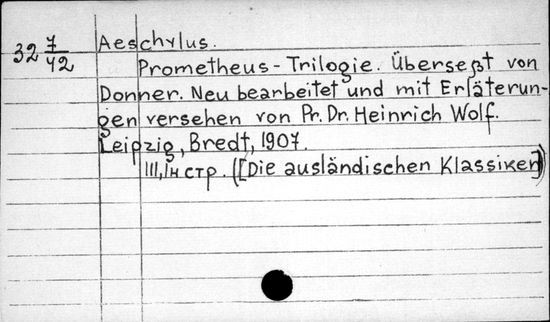 32 7/42
Aeschylus.
Prometheus - Trilogie. Überseßt von
Donner. Neu bearbeitet und mit Erläterun-
gen versehen von Pr. Dr. Heinrich Wolf.
Leipzig, Bredt, 1907.
стр. ([Die ausländischen Klassiker])